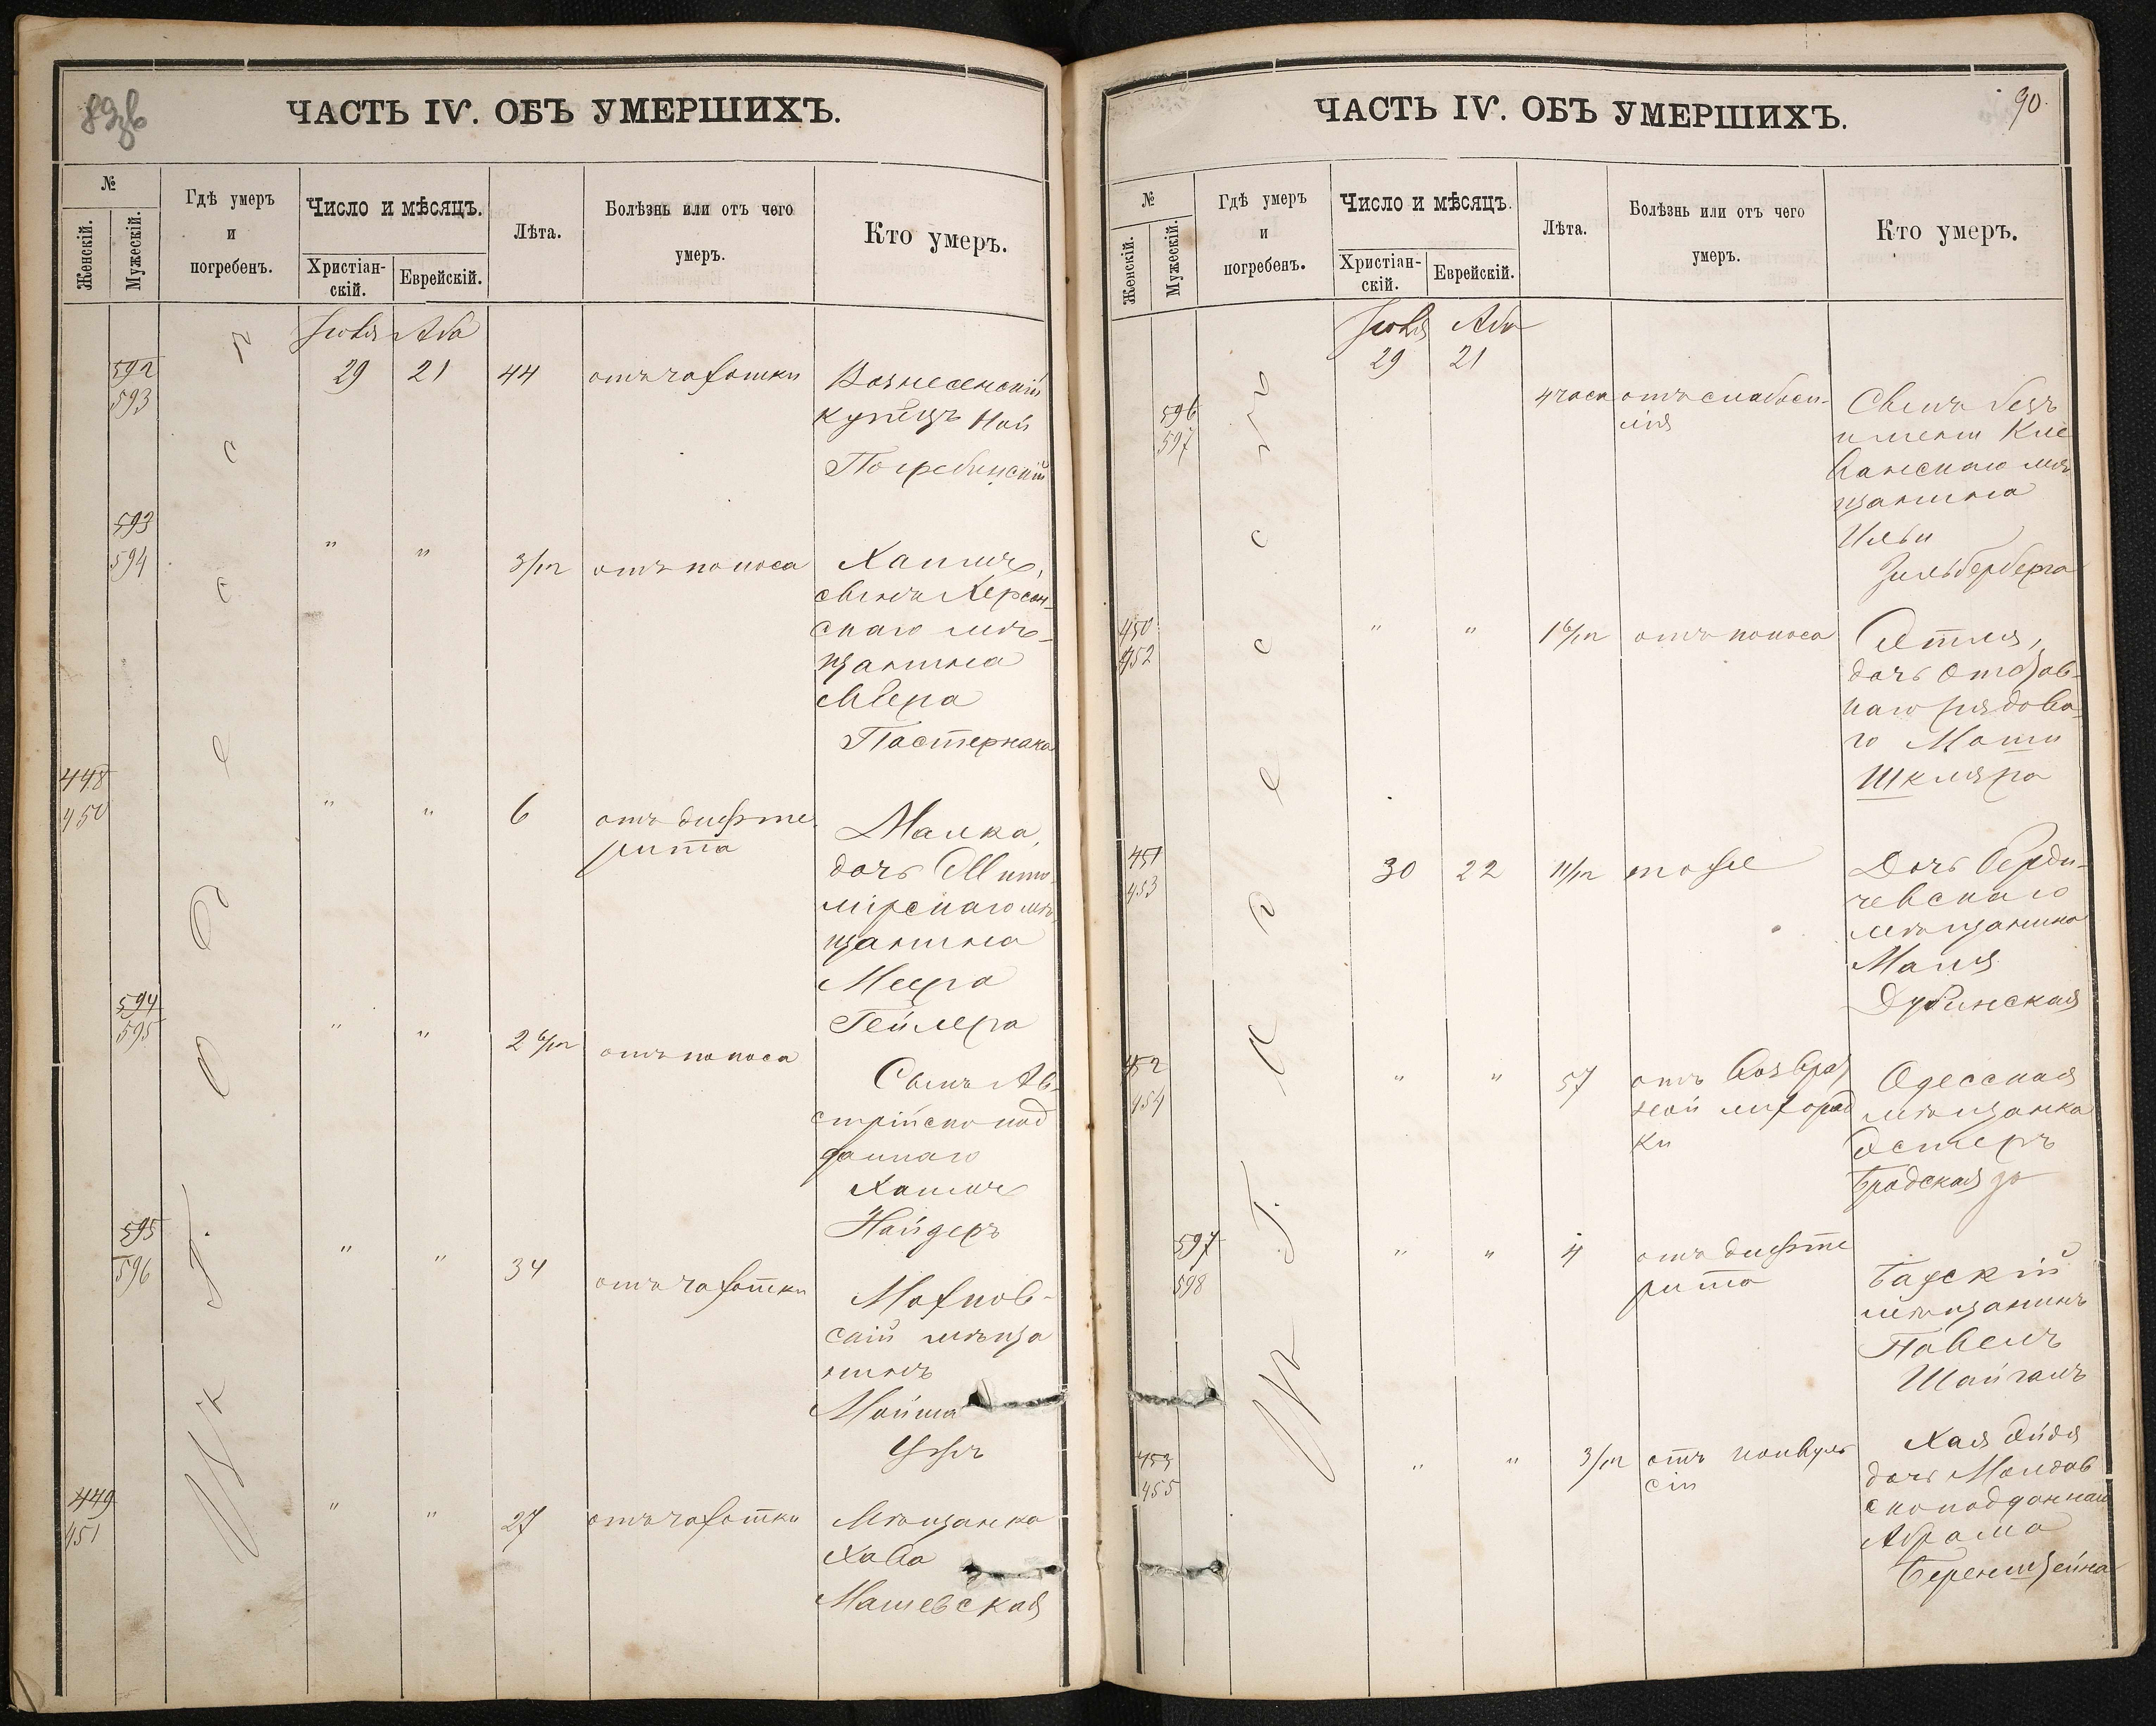 ЧАСТЬ IV. ОБЪ УМЕРШИХЪ.
№
Женскій.
Мужескій.
Гдѣ умеръ
и
погребенъ.
Число и мѣсяцъ.
Христіан-
скій.
Еврейскій.
Лѣта.
Болѣзнь или отъ чего
умеръ.
Кто умеръ.
Іюля Аба
592
593
29 21 44 отъ чахотки Вознесенскій
купецъ Ной
Погребинскій
593
594
" " 3/м отъ поноса Хаимъ,
сынъ Херсон-
скаго мѣ-
щанина
Мера
Пастернака
448
450
" " 6 отъ дифте
рита
Малка,
дочь Жито-
мірскаго мѣ
щанина
Меера
Гейлера
594
595
" " 2 6/м отъ поноса
Сынъ Ав-
стрійскопод
даннаго
Хаимъ
Найдеръ
595
596
" " 34 отъ чахотки
Махнов-
скій мѣща
нинъ
Мойша
449
451
" " 27 отъ чахотки Мѣщанка
Хава
Машевская
въ г. Одессѣ
ЧАСТЬ IV. ОБЪ УМЕРШИХЪ.
90.
№
Женскій.
Мужескій.
Гдѣ умеръ
и
погребенъ.
Число и мѣсяцъ.
Христіан-
скій.
Еврейскій.
Лѣта.
Болѣзнь или отъ чего
умеръ.
Кто умеръ.
Іюля Аба
29 21
596
597
4 часа отъ слабоси-
лія
Сынъ безъ
имени Кле
ванскаго мѣ
щанина
Ильи
Зильберберга
450
452
" " 1 6/м отъ поноса Этля,
дочь отстав-
наго рядова-
го Моти
Шкляра
451
453
30 22 11/м тоже Дочь Берди-
чевскаго
мѣщанина
Маля
Дубинская
452
454
" " 57 отъ возврат
ной лихорад
ки
Одесская
мѣщанка
Эстеръ
Бродская
597
598
" " 4 отъ дифте
рита
мѣщанинъ
Павелъ
453
455
" " 3/м отъ конвуль
сіи
Хая Эйдя
дочь Молдав
скоподданнаго
Абрама
Беренштейна